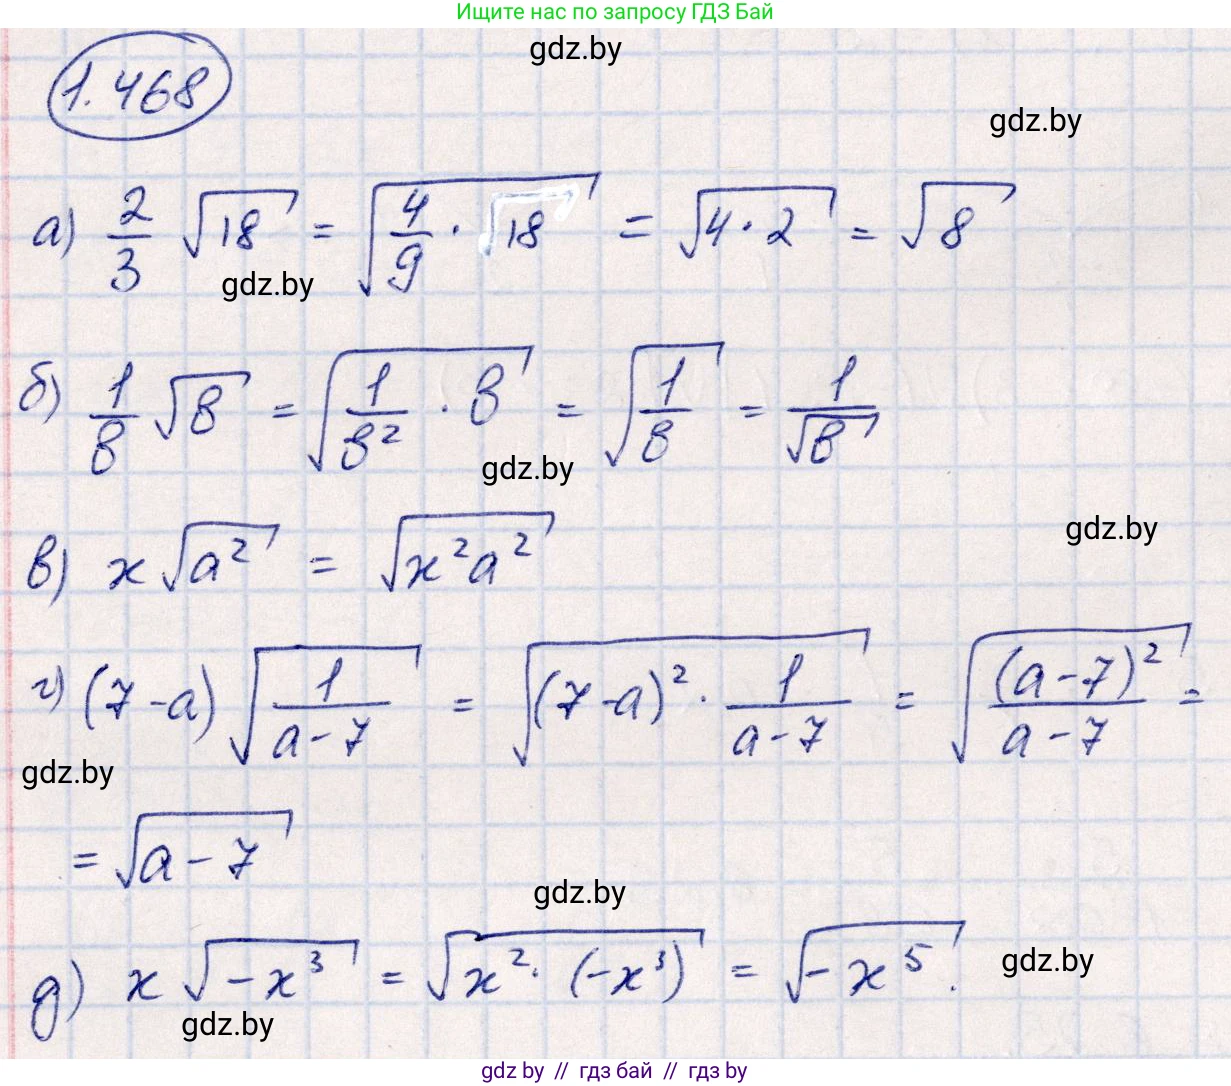 Ищите нас по запросу ГДЗ Бай
gdz.by
1.468
gdz.by
а) 2/3 √18 = √(4/9 · 18) = √(4·2) = √8
gdz.by
б) 1/8 √8 = √(1/8² · 8) = √(1/8) = 1/√8
gdz.by
gdz.by
в) x√a² = √x²a²
г) (7-a)√(1/(a-7)) = √((7-a)² · 1/(a-7)) = √((a-7)²/(a-7)) =
gdz.by
= √(a-7)
gdz.by
д) x√(-x³) = √(x²·(-x³)) = √(-x⁵).
gdz.by
gdz.by
gdz.by // гдз бай // gdz.by